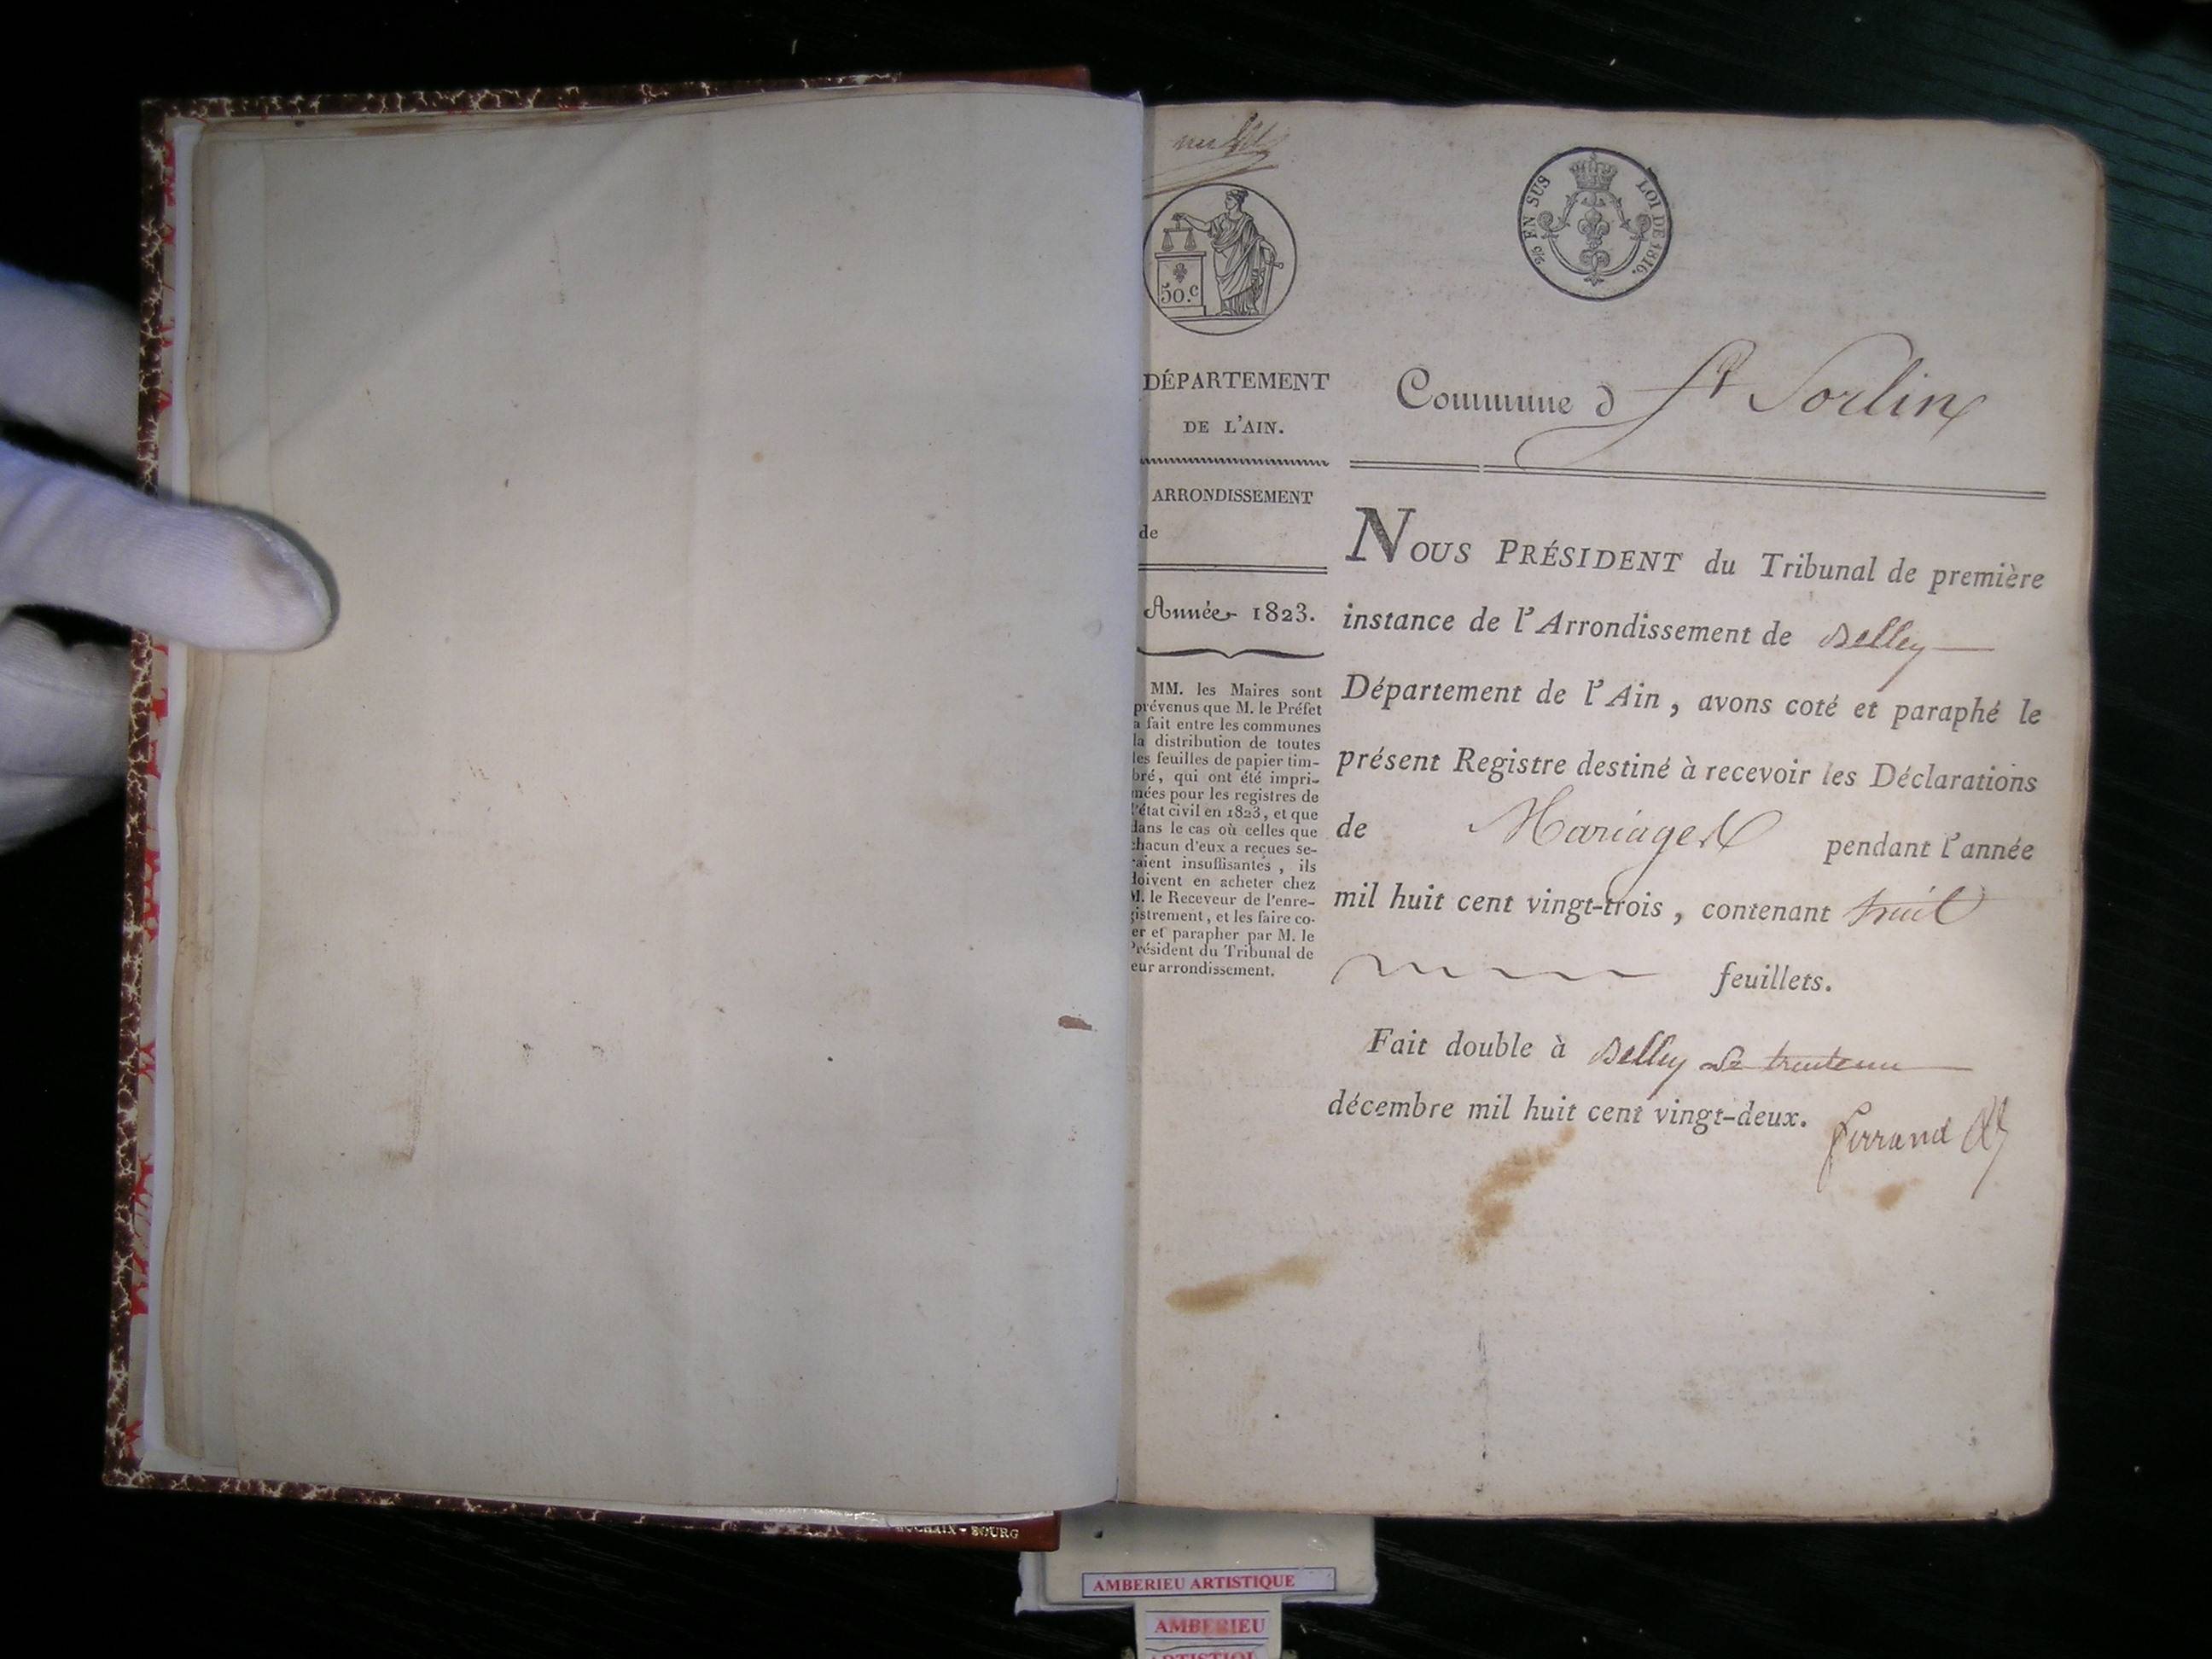 50.c
2/10 EN SUS LOI DE 1816.
DÉPARTEMENT
DE L'AIN.
ARRONDISSEMENT
de
Année 1823.
MM. les Maires sont
prévenus que M. le Préfet
a fait entre les communes
la distribution de toutes
les feuilles de papier tim-
bré, qui ont été impri-
mées pour les registres de
l'état civil en 1823, et que
dans le cas où celles que
chacun d'eux a reçues se-
raient insuffisantes, ils
doivent en acheter chez
M. le Receveur de l'enre-
gistrement, et les faire co-
er et parapher par M. le
Président du Tribunal de
eur arrondissement.
Commune d St Sorlin
NOUS PRÉSIDENT du Tribunal de première
instance de l'Arrondissement de Belley
Département de l'Ain, avons coté et paraphé le
présent Registre destiné à recevoir les Déclarations
de Mariages pendant l'année
mil huit cent vingt-trois, contenant huit
feuillets.
Fait double à Belley le trente un
décembre mil huit cent vingt-deux.
Ferrand
BOURG
AMBERIEU ARTISTIQUE
AMBERIEU
ARTISTIQUE